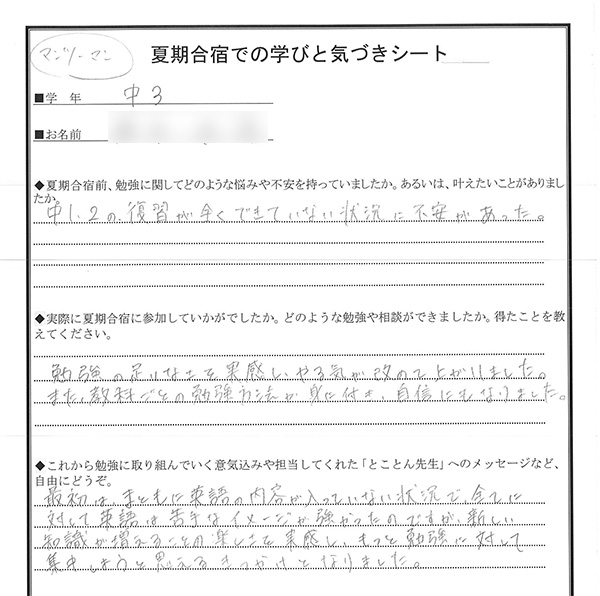 マンツーマン
夏期合宿での学びと気づきシート
■学 年 中3
■お名前
◆夏期合宿前、勉強に関してどのような悩みや不安を持っていましたか。あるいは、叶えたいことがありまし
たか。
中1.2の復習が全くできていない状況に不安があった。
◆実際に夏期合宿に参加していかがでしたか。どのような勉強や相談ができましたか。得たことを教
えてください。
勉強の足りなさを実感し、やる気が改めて上がりました。
また、教科ごとの勉強方法が身に付き、自信にもなりました。
◆これから勉強に取り組んでいく意気込みや担当してくれた「とことん先生」へのメッセージなど、
自由にどうぞ。
最初は、まともに英語の内容が入っていない状況で、全てに
対して英語は苦手なイメージが強かったのですが、新しい
知識が増えることの楽しさを実感し、もっと勉強に対して
集中しようと思えるきっかけとなりました。